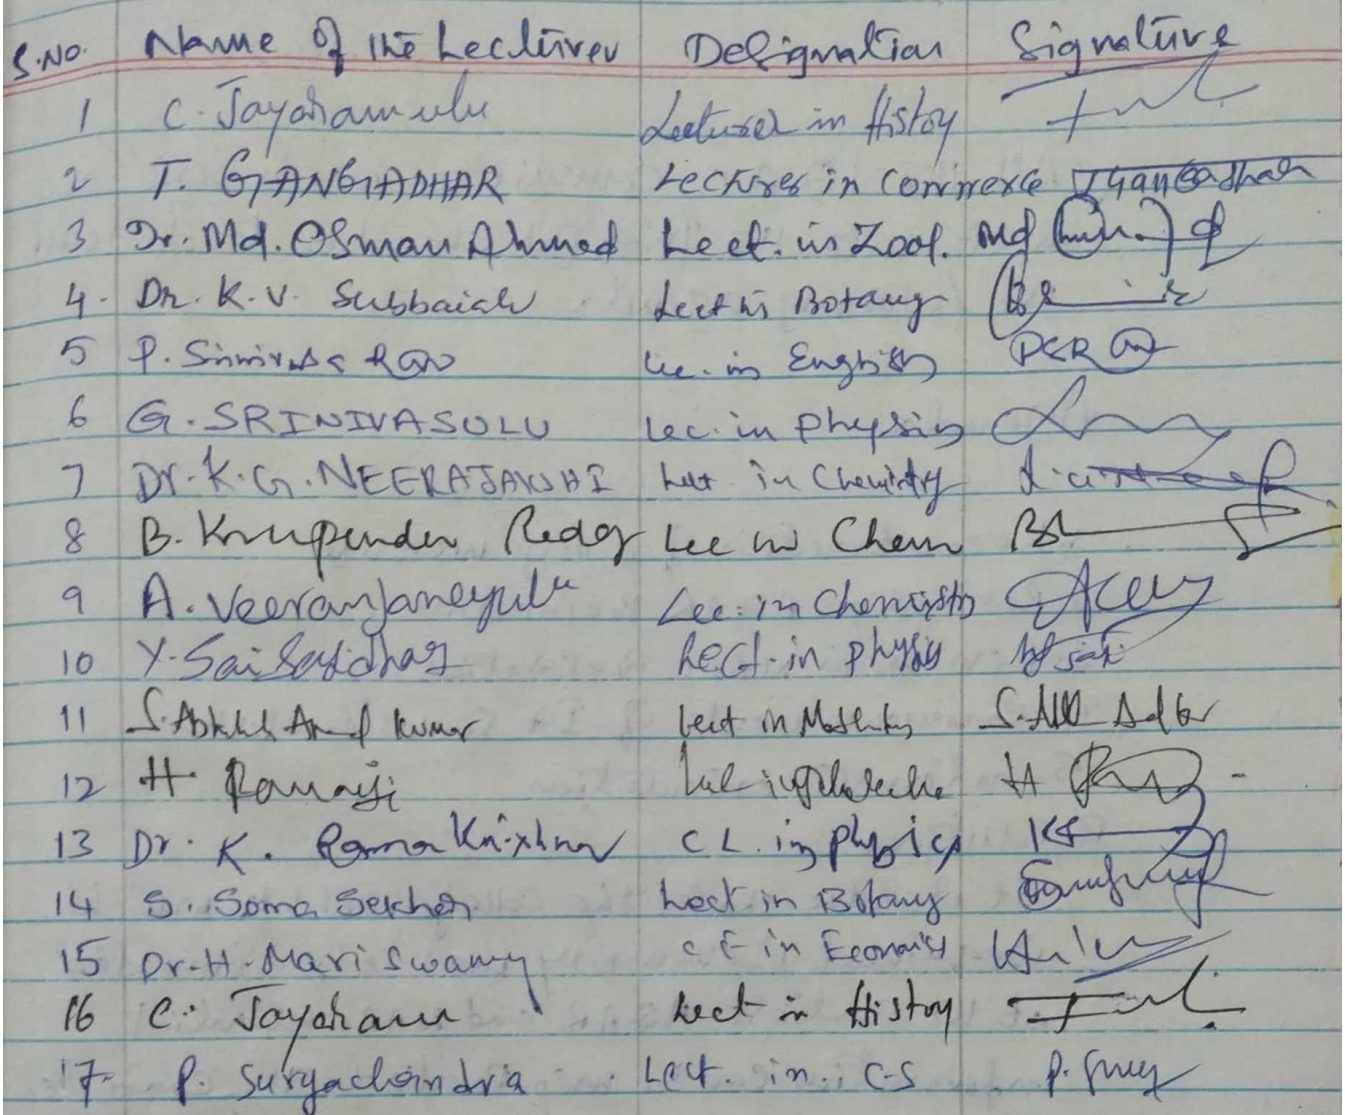 S.No. Name of the Lecturer Designation Signature
1 C. Jayaramulu Lecturer in History
2 T. GANGADHAR Lecturer in Commerce TGangadhar
3 Dr. Md. Osman Ahmed Lect. in Zool. Md
4. Dr. K. V. Subbaiah Lect in Botany
5 P. Srinivasa Rao Lec. in English PSR
6 G. SRINIVASULU Lec. in physics
7 Dr. K. G. NEERAJAKSHI Lect in Chemistry
8 B. Krupender Reddy Lec in Chem
9 A. Veeranjaneyulu Lec. in Chemistry
10 Y. Sai Lect. in physics
11 S. Kumar Lect in
12 H. Ramanji H
13 Dr. K. Rama Krishna C L. in physics
14 S. Soma Sekhar Lect. in Botany
15 Dr. H. Mariswamy in Economics
16 C. Jayaram Lect in History
17. P. Suryachandra Lect. in. CS P.